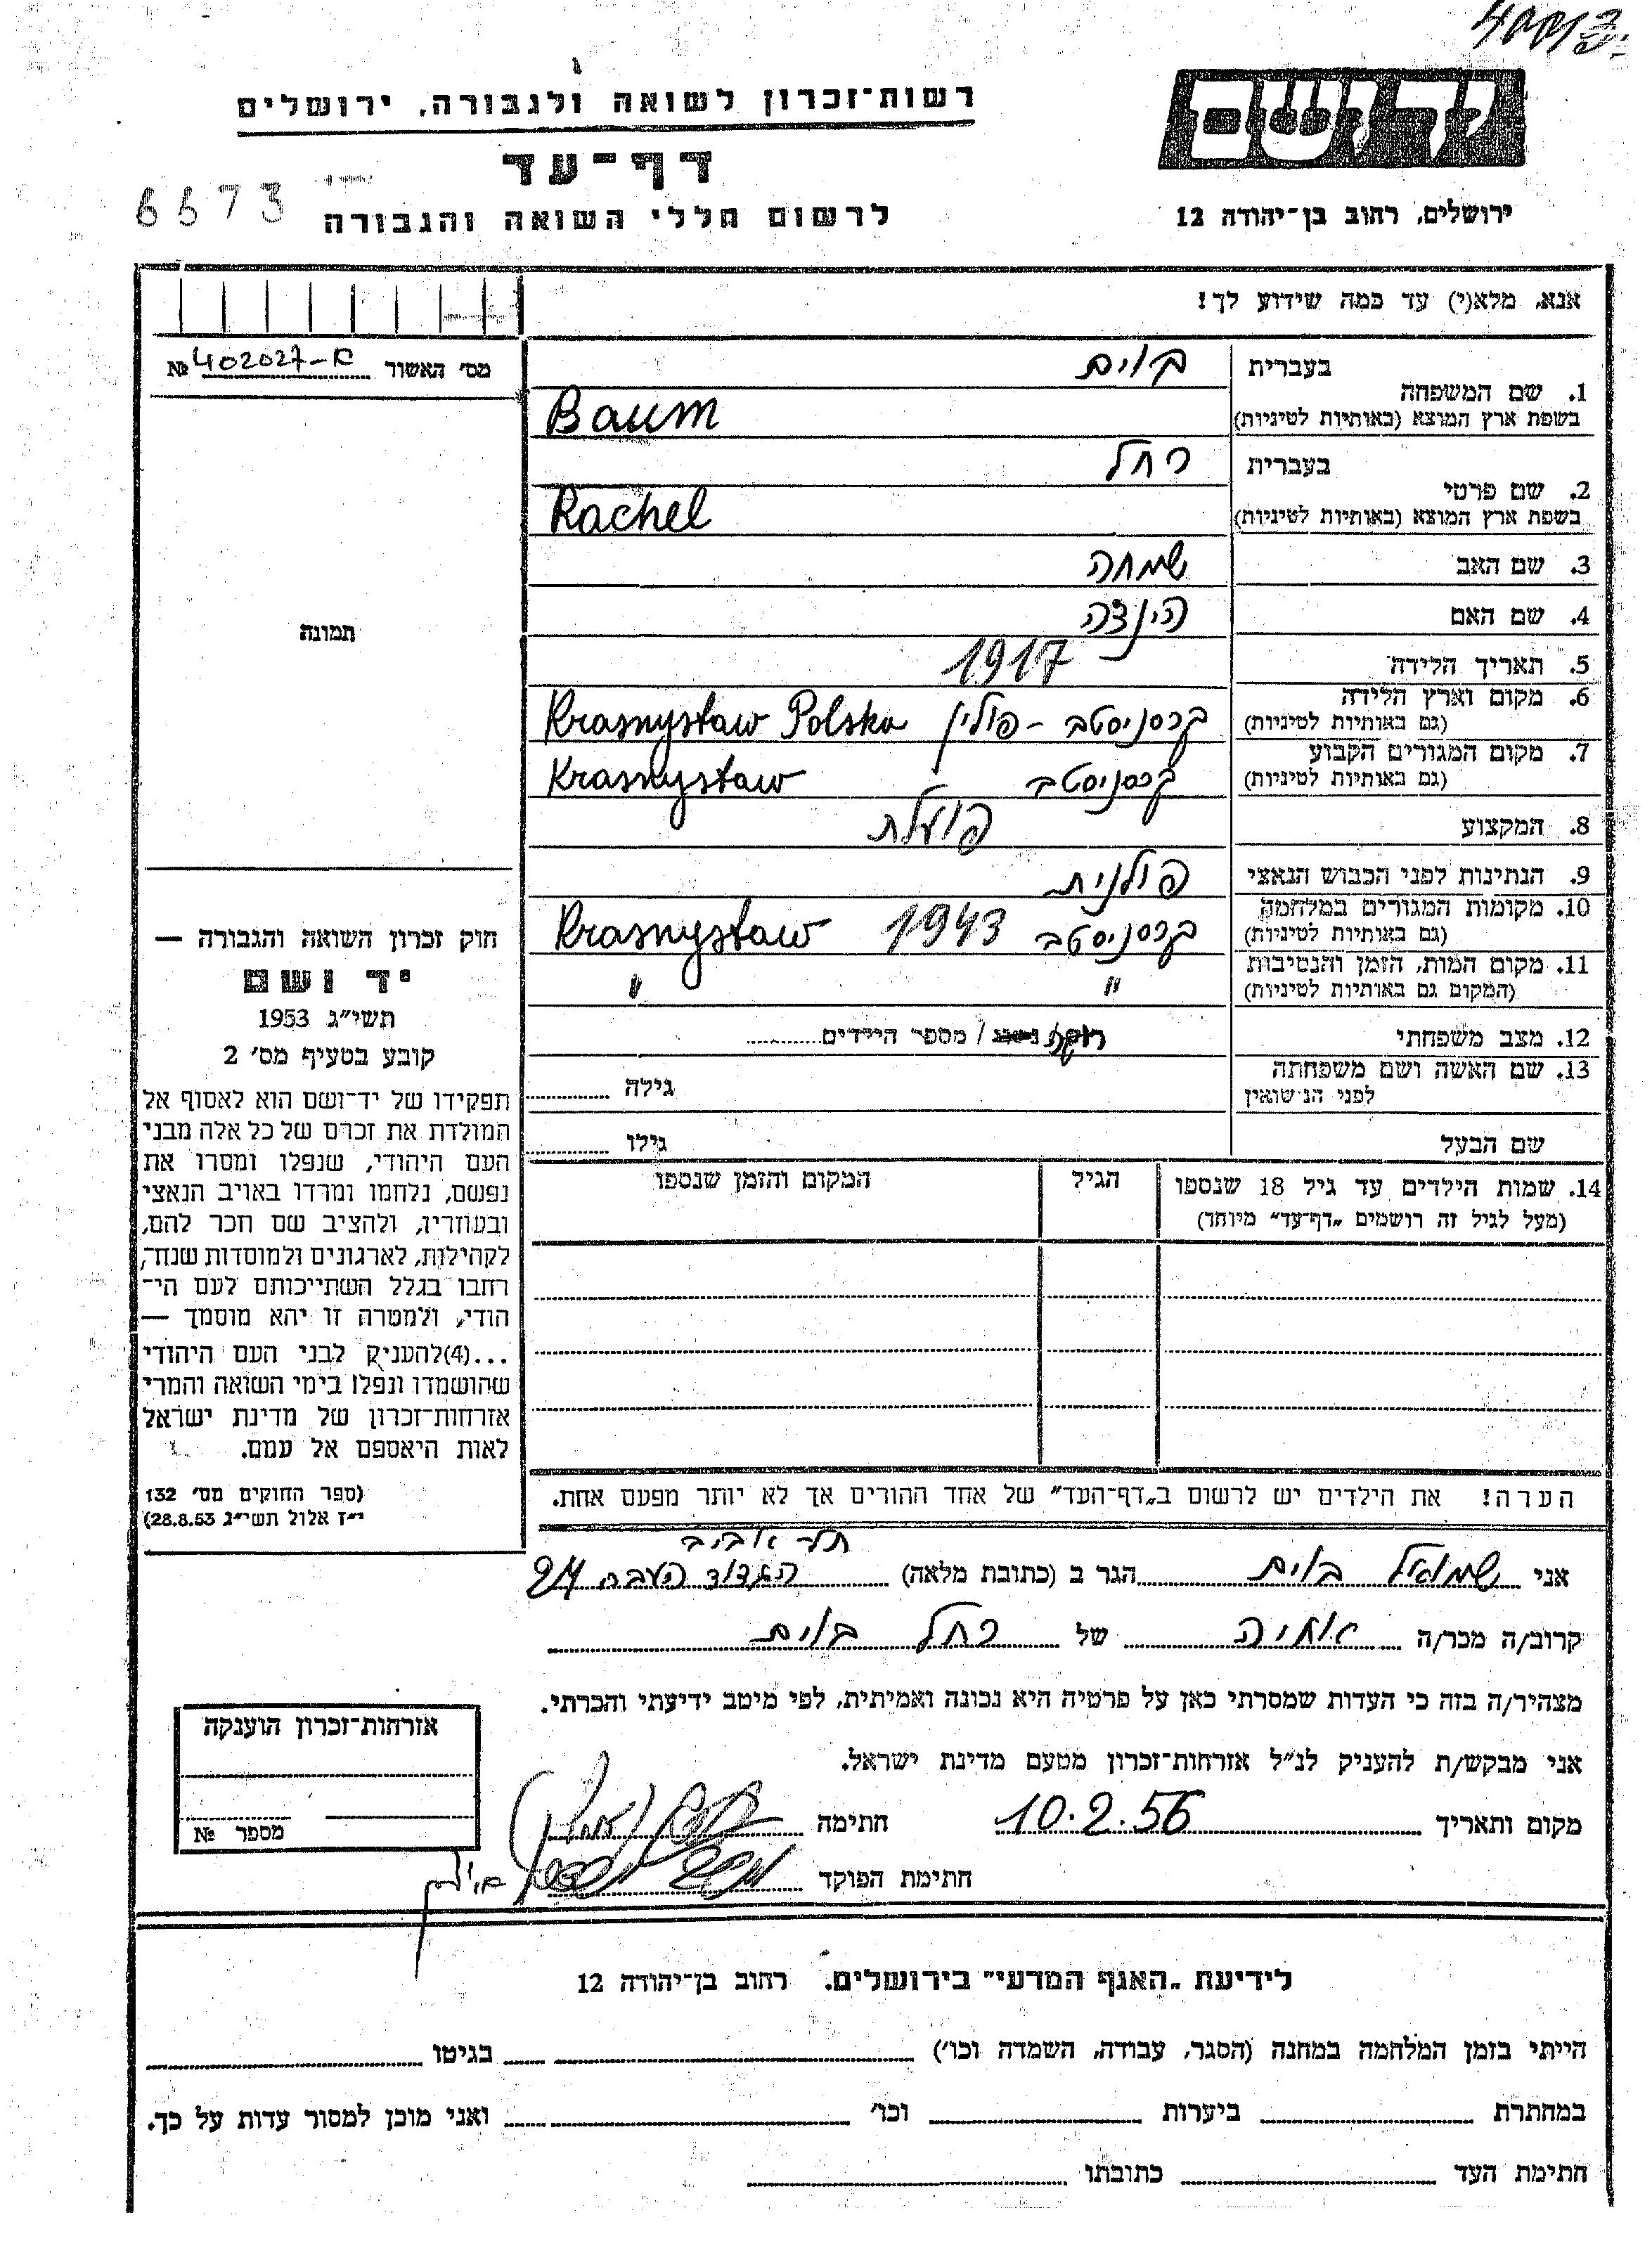 רשות־זכרון לשואה ולגבורה, ירושלים
דף־עד
6673
לרשום חללי השואה והגבורה
ירושלים, רחוב בן־יהודה 12
אנא, מלא(י) עד כמה שידוע לך!
מס' האשור № 402027-א
בעברית בוים
1. שם המשפחה
בשפת ארץ המוצא (באותיות לטיניות) Baum
בעברית רחל
2. שם פרטי
בשפת ארץ המוצא (באותיות לטיניות) Rachel
3. שם האב שמחה
4. שם האם הינצה
5. תאריך הלידה 1917
6. מקום וארץ הלידה
(גם באותיות לטיניות) קרסניסטב - פולין Krasnystaw Polska
7. מקום המגורים הקבוע
(גם באותיות לטיניות) קרסניסטב Krasnystaw
8. המקצוע פועלת
9. הנתינות לפני הכבוש הנאצי פולנית
10. מקומות המגורים במלחמה
(גם באותיות לטיניות) קרסניסטב 1943 Krasnystaw
11. מקום המות, הזמן והנסיבות
(המקום גם באותיות לטיניות) " "
12. מצב משפחתי רוקה / נשוי / מספר הילדים
13. שם האשה ושם משפחתה
לפני הנישואין גילה
שם הבעל גילו
14. שמות הילדים עד גיל 18 שנספו הגיל המקום והזמן שנספו
(מעל לגיל זה רושמים „דף־עד" מיוחד)
הערה! את הילדים יש לרשום ב„דף־העד" של אחד ההורים אך לא יותר מפעם אחת.
תמונה
חוק זכרון השואה והגבורה —
יד ושם
תשי"ג 1953
קובע בסעיף מס' 2
תפקידו של יד־ושם הוא לאסוף אל
המולדת את זכרם של כל אלה מבני
העם היהודי, שנפלו ומסרו את
נפשם, נלחמו ומרדו באויב הנאצי
ובעוזריו, ולהציב שם וזכר להם,
לקהילות, לארגונים ולמוסדות שנח־
רבו בגלל השתייכותם לעם הי־
הודי, ולמטרה זו יהא מוסמך —
...(4)להעניק לבני העם היהודי
שהושמדו ונפלו בימי השואה והמרי
אזרחות־זכרון של מדינת ישראל
לאות היאספם אל עמם.
(ספר החוקים מס' 132
י"ז אלול תשי"ג 28.8.53)
תל אביב
אני שמואל בוים הגר ב (כתובת מלאה) הגדוד העברי
קרוב/ה מכר/ה אחיה של רחל בוים
מצהיר/ה בזה כי העדות שמסרתי כאן על פרטיה היא נכונה ואמיתית, לפי מיטב ידיעתי והכרתי.
אני מבקש/ת להעניק לנ"ל אזרחות־זכרון מטעם מדינת ישראל.
מקום ותאריך 10.2.56 חתימה
חתימת הפוקד
אזרחות־זכרון הוענקה
מספר №
לידיעת „האגף המדעי" בירושלים, רחוב בן־יהודה 12
הייתי בזמן המלחמה במחנה (הסגר, עבודה, השמדה וכו') בגיטו
במחתרת ביערות וכו' ואני מוכן למסור עדות על כך.
חתימת העד כתובתו